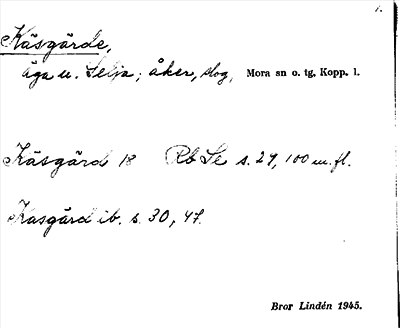 1.
Käsgärde,
äga u. Selja; åker, slog, Mora sn o. tg, Kopp. l.
Käsgärd 18 Rb Se s. 29, 100 m. fl.
Käsgärd ib. s. 30, 47.
Bror Lindén 1945.